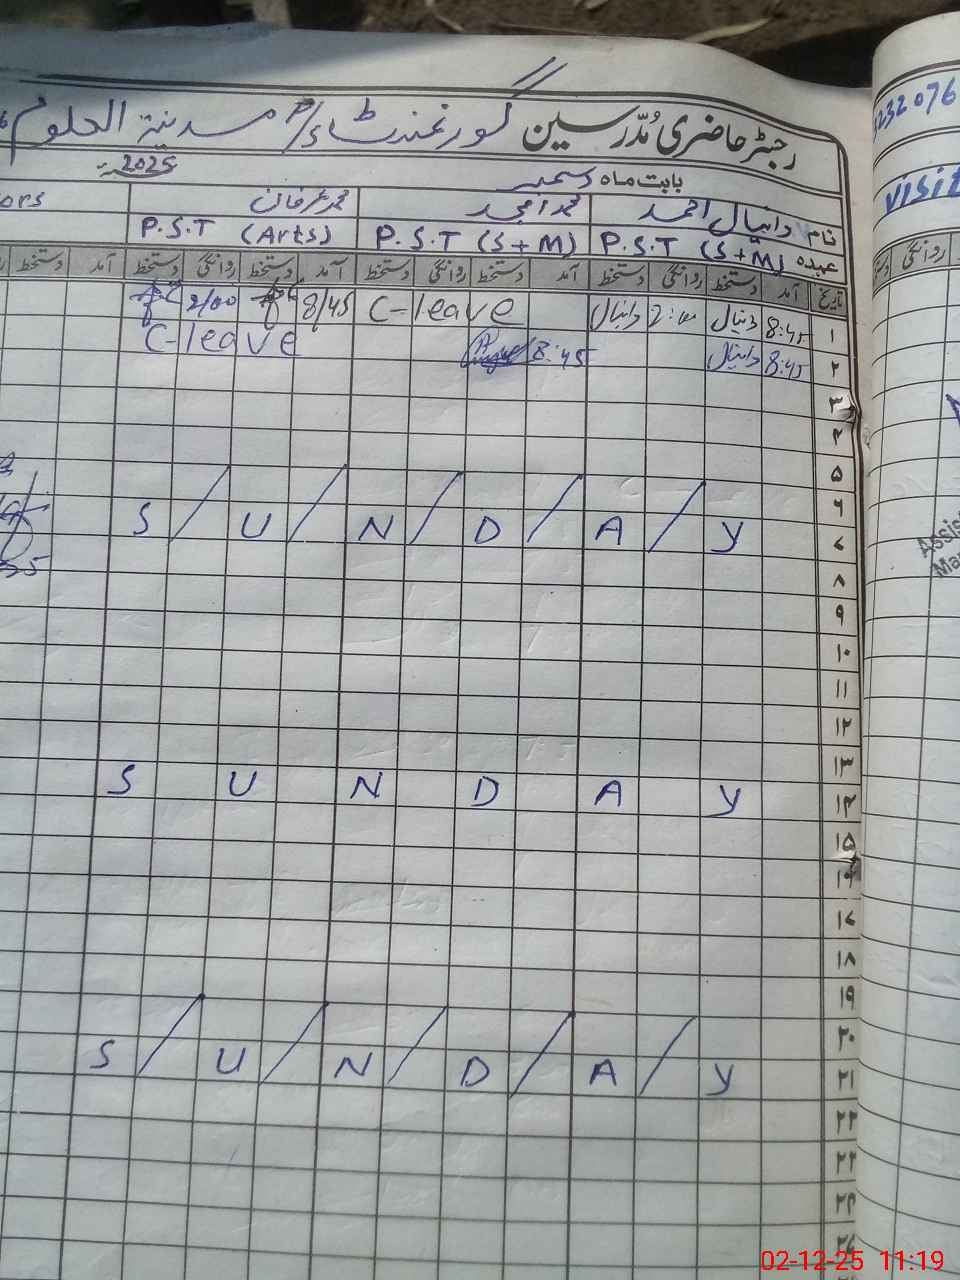 رجسٹر حاضری مُدّرسین گورنمنٹ مدنیۃ العلوم
بابت ماہ دسمبر 2025
نام دانیال احمد محمد امجد محمد عرفان
عہدہ P.S.T (S+M) P.S.T (S+M) P.S.T (Arts)
تاریخ آمد دستخط روانگی دستخط آمد دستخط روانگی دستخط آمد دستخط روانگی دستخط آمد دستخط
۱ 8:45 دانیال 2:00 دانیال C-leave 8/45 2/00
۲ 8:45 دانیال 8:45 C-leave
۳
۴
۵
۶
۷ S U N D A Y
۸
۹
۱۰
۱۱
۱۲
۱۳
۱۴ S U N D A Y
۱۵
۱۶
۱۷
۱۸
۱۹
۲۰
۲۱ S U N D A Y
۲۲
۲۳
۲۴
5232076
visit
روانگی دستخط
Assis
Ma
02-12-25 11:19